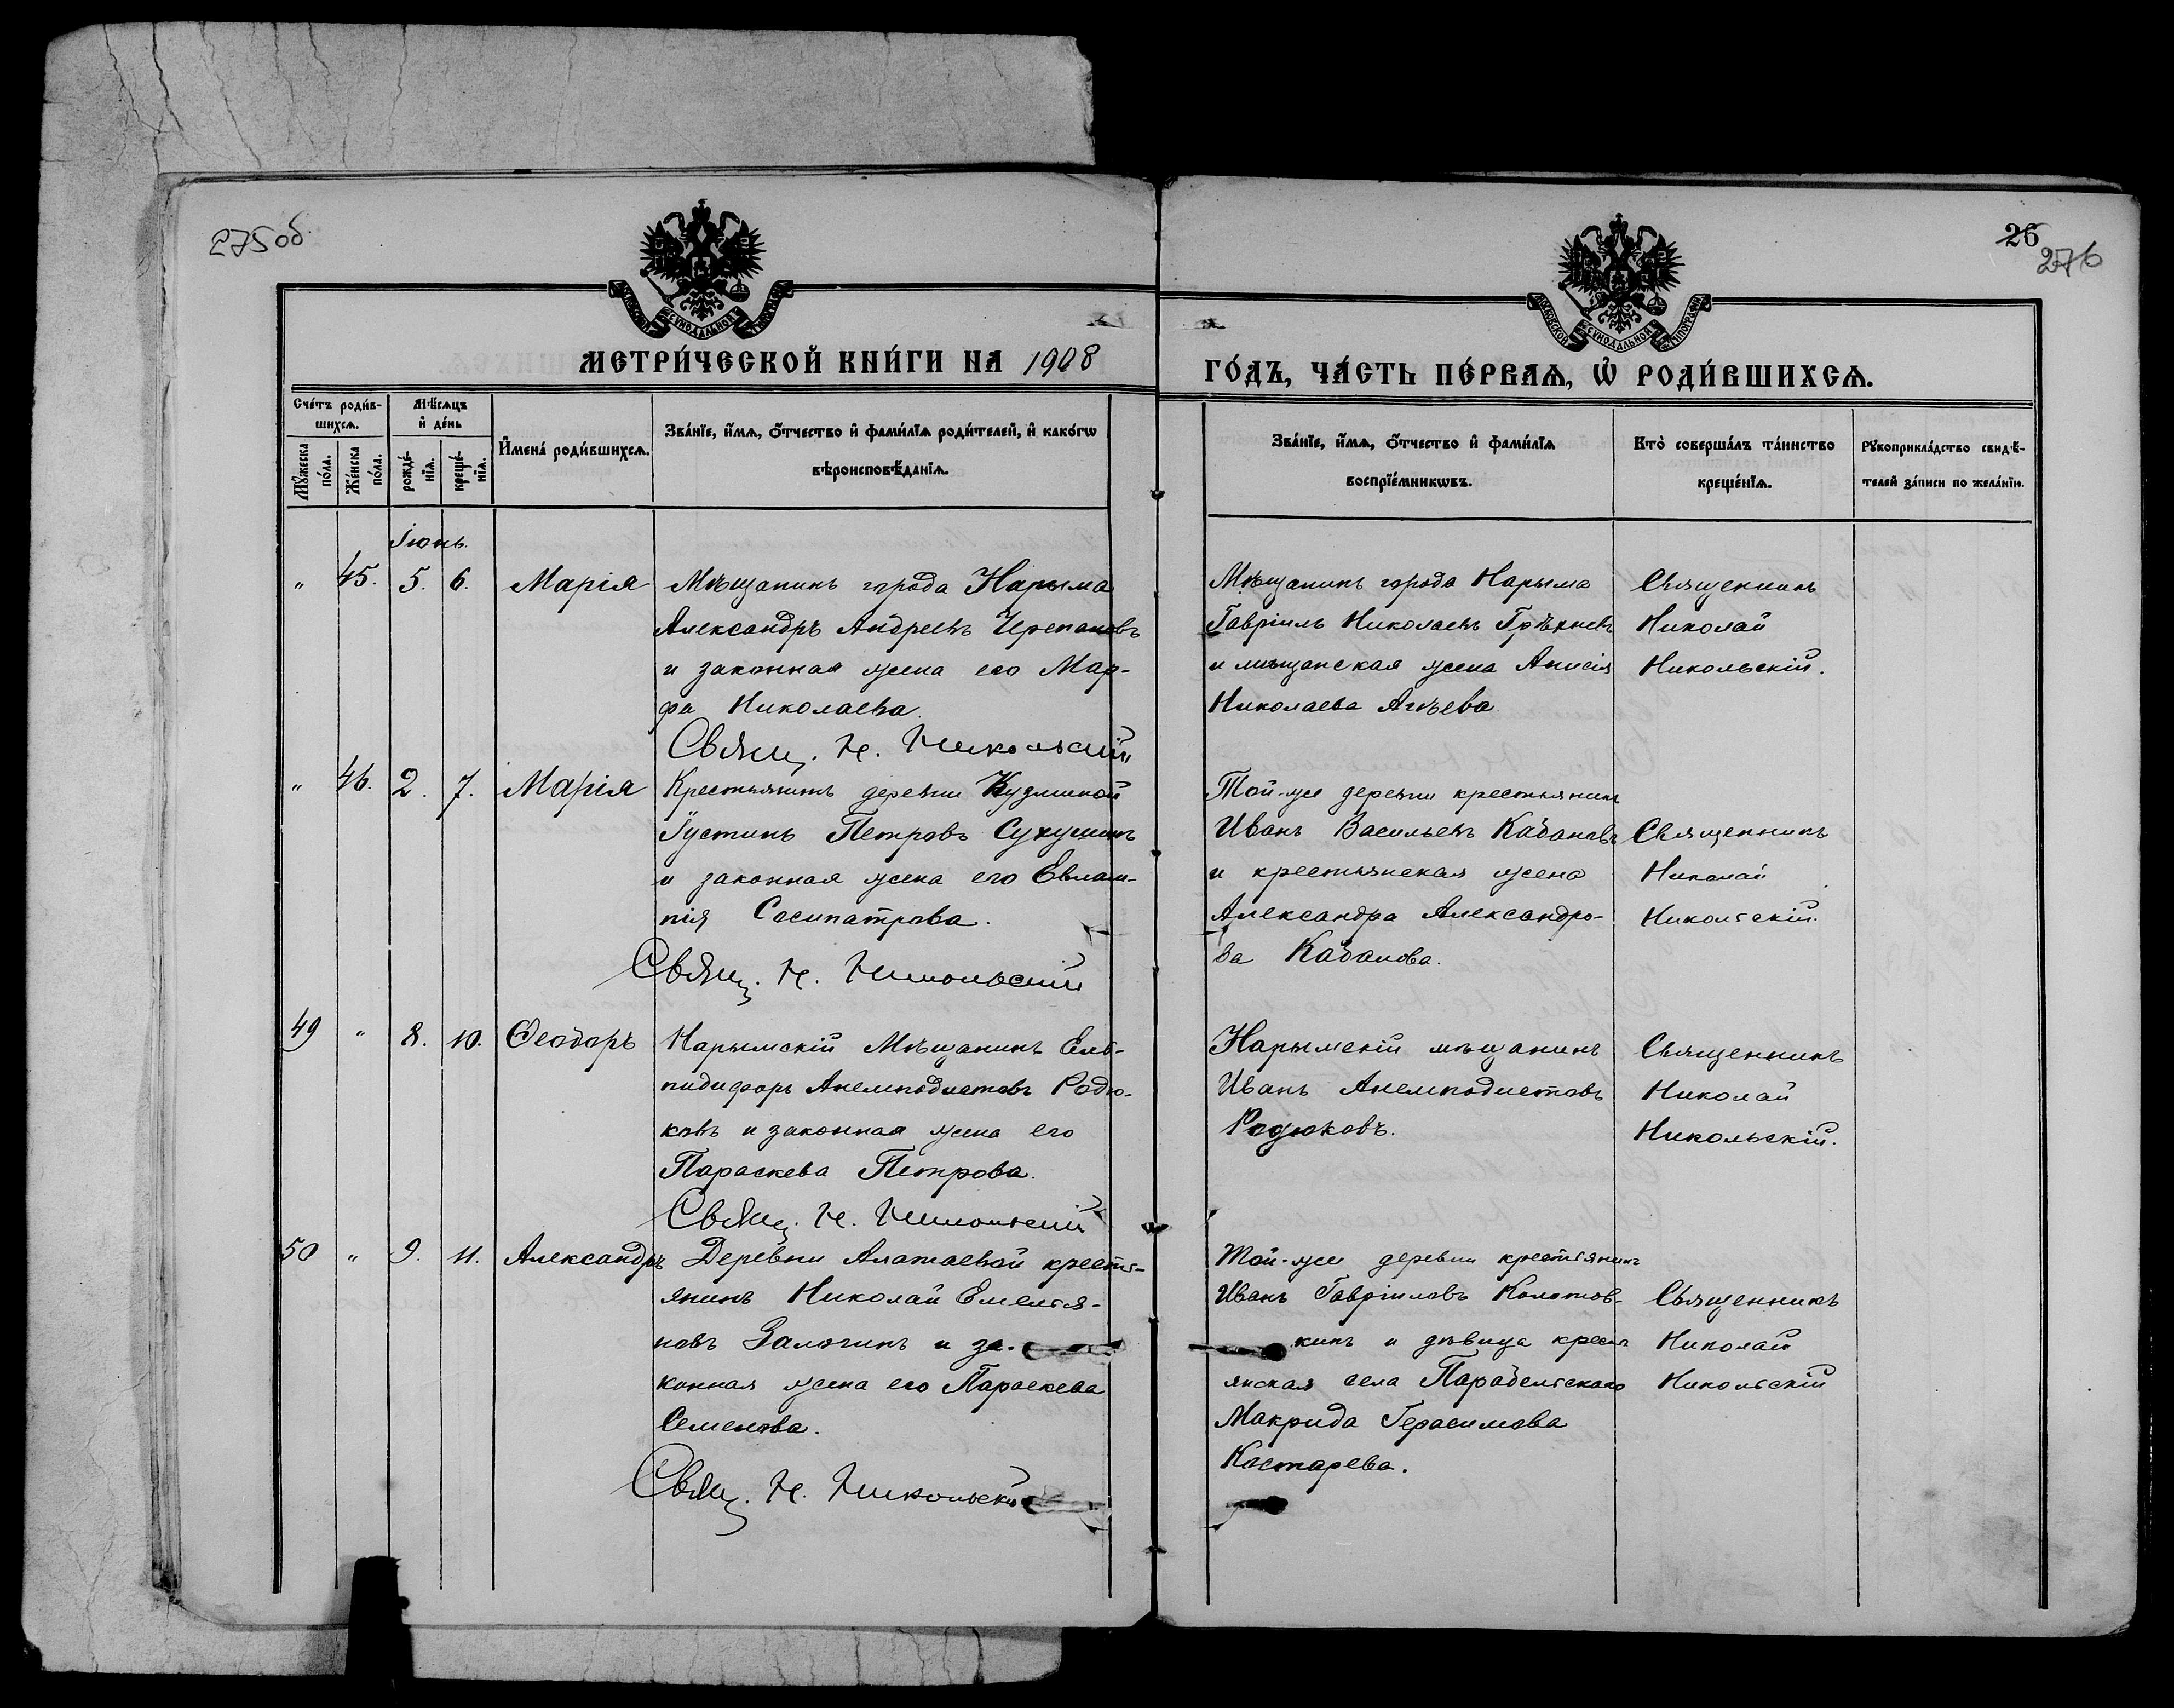 275об.
26
276
МОСКОВСКОЙ СѴНОДАЛЬНОЙ ТИПОГРАФІИ
МОСКОВСКОЙ СѴНОДАЛЬНОЙ ТИПОГРАФІИ
МЕТРИ́ЧЕСКОЙ КНИ́ГИ НА 1908
ГО́ДЪ, ЧА́СТЬ ПЕ́РВАѦ, Ѡ҆ РОДИ́ВШИХСѦ.
Сче́тъ роди́в-
шихсѧ.
Мꙋ́жеска по́ла.
Же́нска по́ла.
Мѣ́сѧцъ
и҆ де́нь
рожде́-нїѧ.
креще́-нїѧ.
И҆мена̀ роди́вшихсѧ.
Зва́нїе, и҆́мѧ, ѻ҆́тчество и҆ фами́лїѧ роди́телей, и҆ како́гѡ
вѣроисповѣ́данїѧ.
Зва́нїе, и҆́мѧ, ѻ҆́тчество и҆ фами́лїѧ
воспрїе́мникѡвъ.
Кто̀ соверша́лъ та́инство
креще́нїѧ.
Рꙋкоприкла́дство свидѣ́-
телей за́писи по жела́нїю.
Іюнь.
" 45. 5. 6. Марія Мѣщанинъ города Нарыма
Александръ Андреевъ Черепановъ
и законная жена его Мар-
фа Николаева.
Свящ. Н. Никольскій
Мѣщанинъ города Нарыма
Гавріилъ Николаевъ Грѣхневъ
и мѣщанская жена Анисія
Николаева
Священникъ
Николай
Никольскій.
" 46. 2. 7. Марія Крестьянинъ деревни Кузминой
Іустинъ Петровъ Сухушинъ
и законная жена его Евлам-
пія Сосипатрова.
Свящ. Н. Никольскій
Той-же деревни крестьянинъ
Иванъ Васильевъ Кабановъ
и крестьянская жена
Александра Александро-
ва Кабанова.
Священникъ
Николай
Никольскій.
49 " 8. 10. Ѳеодоръ Нарымскій Мѣщанинъ Ель-
пидифоръ Анемподистовъ Родю-
ковъ и законная жена его
Параскева Петрова.
Свящ. Н. Никольскій
Нарымскій мѣщанинъ
Иванъ Анемподистовъ
Родюковъ.
Священникъ
Николай
Никольскій.
50 " 9. 11. Александръ Деревни Алатаевой кресть-
янинъ Николай Емелья-
новъ Залогинъ и за-
конная жена его Параскева
Семенова.
Свящ. Н. Никольскій
Той-же деревни крестьянинъ
Иванъ Гавріиловъ Колотов-
кинъ и дѣвица крест
янская села Парабельскаго
Макрида Герасимова
Костарева.
Священникъ
Николай
Никольскій